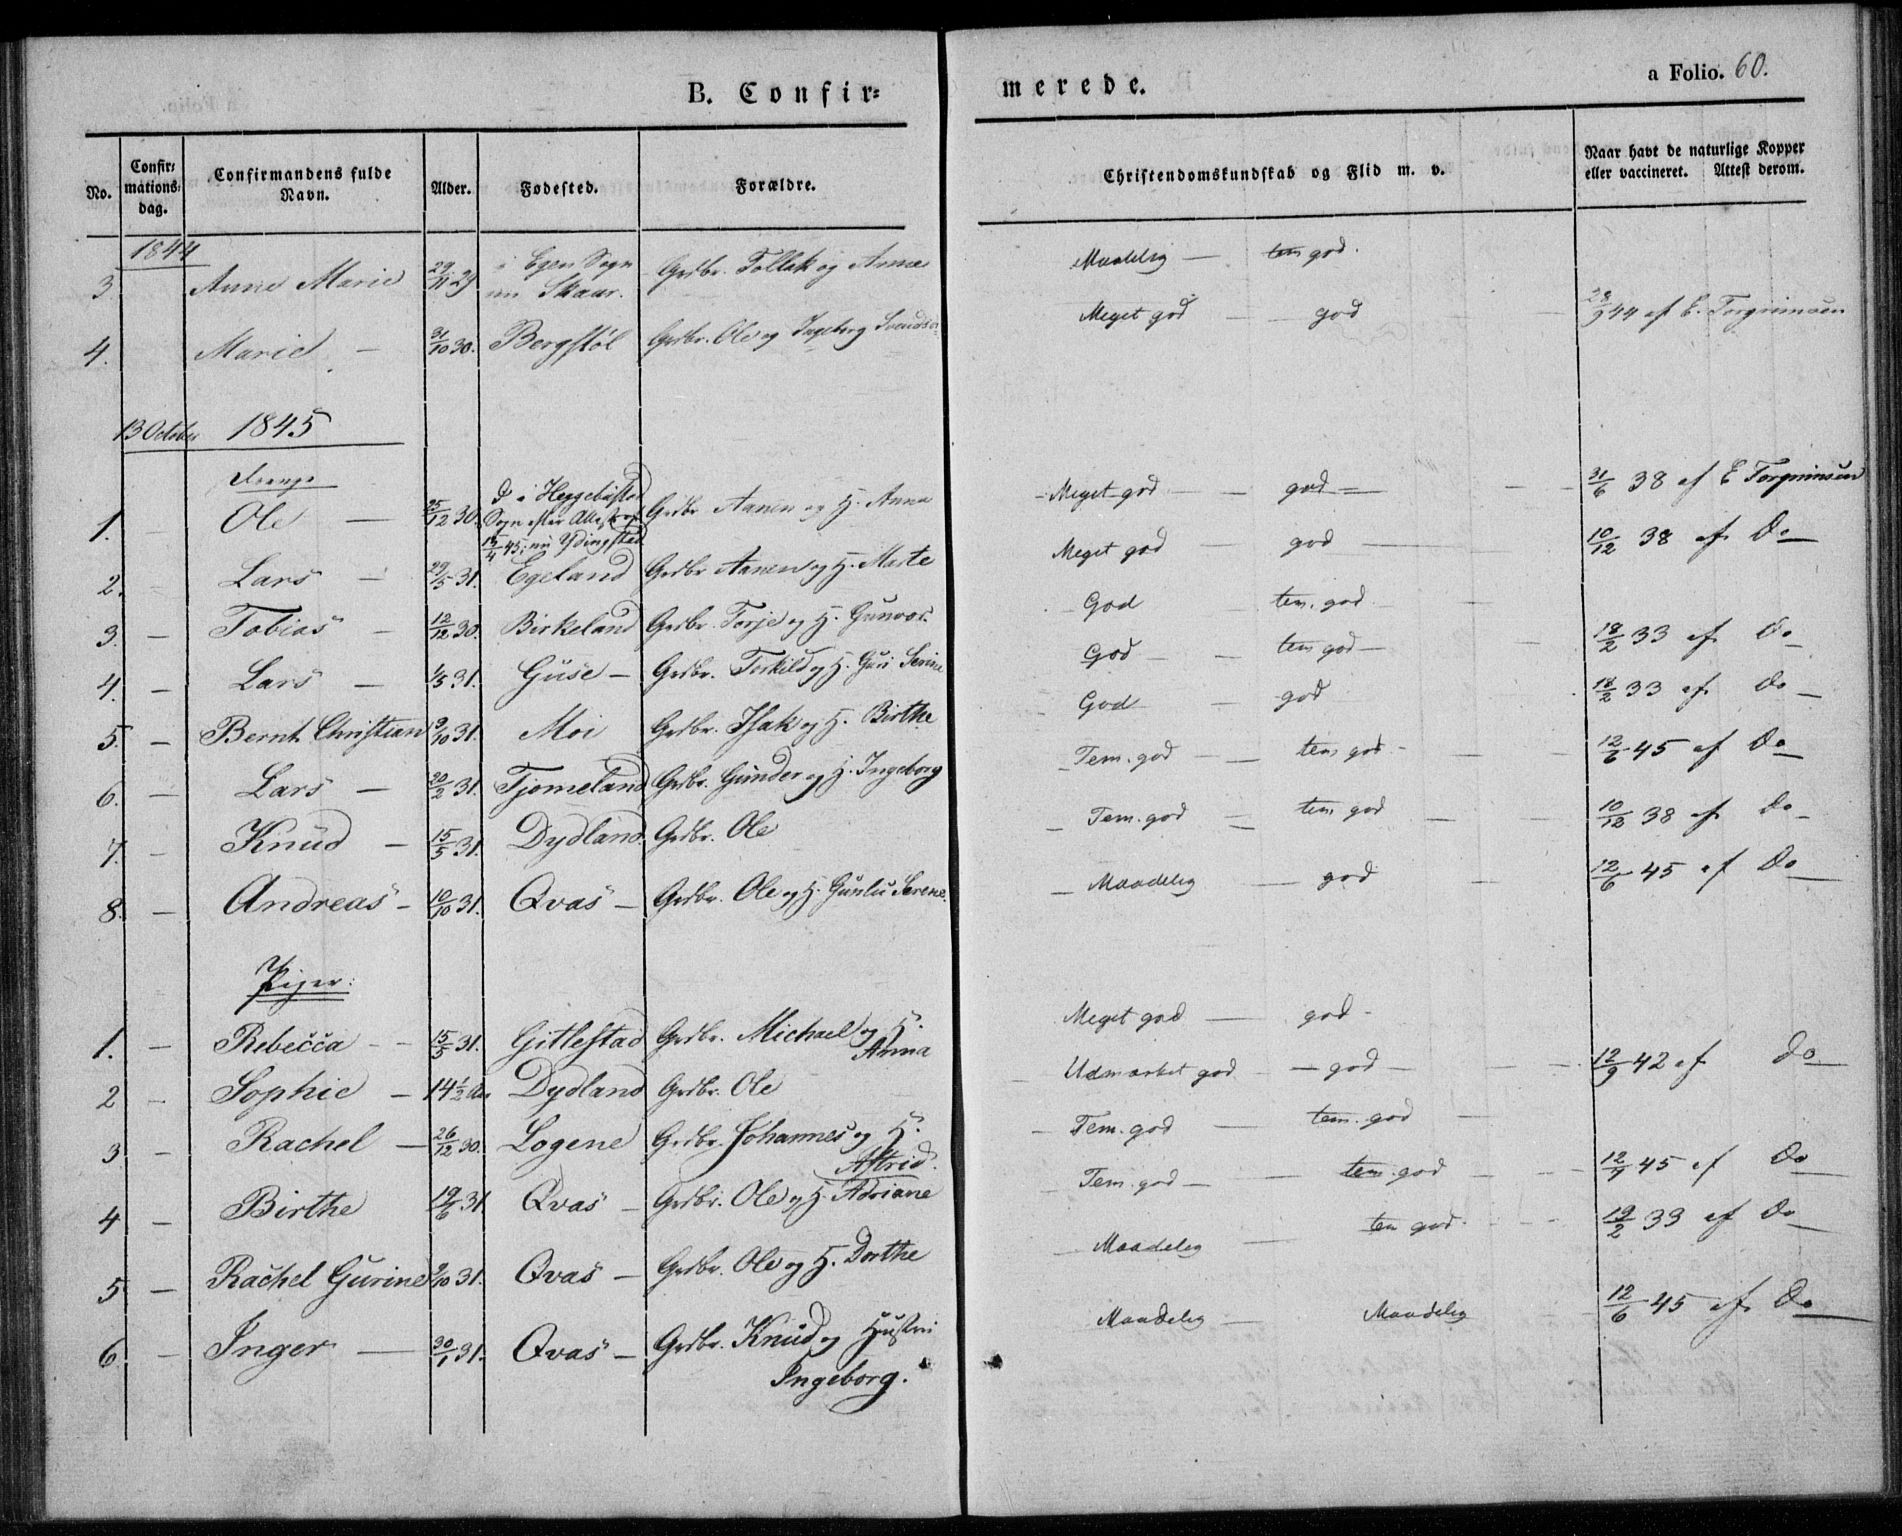 B. Confirmerede.
a Folio. 60.
No. Confirmations-dag. Confirmandens fulde Navn. Alder. Fødested. Forældre. Christendomskundskab og Flid m. v. Naar havt de naturlige Kopper eller vaccineret. Attest derom.
1844
3. Anne Marie 29/11 29 i Egen Sogn nu Skaar. Grdbr. Tollak og Anna Maadelig — tem god.
4. Marie — 31/10 30. Bergstøl Grdbr. Ole og Ingeborg Meget god — god — 28/9 44 af E. Torgrimsen
13 October 1845
Drenge
1. Ole — 25/12 30. D i Heggebüstad Sogn efter Attest af 15/4 45; nu Ydingstad Grdbr Aanen og H. Anna Meget god — god — 31/6 38 af E Torgrimsen
2. Lars — 29/5 31. Egeland Grdbr Aanen og H. Marte Meget god god — 10/12 38 af Do
3. — Tobias — 12/12 30. Birkeland Grdbr. Torje og H. Gunvor. God tem. god
4. — Lars — 1/5 31. Güse — Grdbr. Torkild og H. Guri Serine God — tem god — 18/2 33 af Do
5. — Bernt Christian 9/10 31. Moi Grdbr. Isak og H. Birthe God — god 18/2 33 af Do
6. — Lars — 20/2 31. Tjomeland Grdbr. Gunder og H. Ingeborg Tem. god — tem god — 12/6 45 af Do
7. — Knüd — 15/5 31. Dydland. Grdbr. Ole Tem. god — tem god — 10/12 38 af Do
8. — Andreas — 10/10 31. Qvas — Grdbr. Ole og H. Gunlu Serene. Maadelig — god — 12/6 45 af Do
Piger:
1. — Rebecca — 15/5 31. Gitlestad Grdbr. Michael og H. Anna Meget god — god —
2 — Sophie — 14 1/2 Aar Dydland Grdbr. Ole Udmærket god — god — 12/9 42 af Do
3 — Rachel — 26/12 30. Logene Grdbr. Johannes og H. Astrid. Tem. god — tem. god —
4 — Birthe 19/6 31. Qvas — Grdbr. Ole og H. Adriane Tem. god — tem. god 12/9 45 af Do
5 — Rachel Gurine 9/10 31. Qvas — Grdbr. Ole og H. Dorthe Maadelig — tem god. 19/2 33 af Do
6 — Inger — 30/1 31. Qvas — Grdbr. Knüd og Hustru Ingeborg. Maadelig — Maadelig 12/6 45 af Do